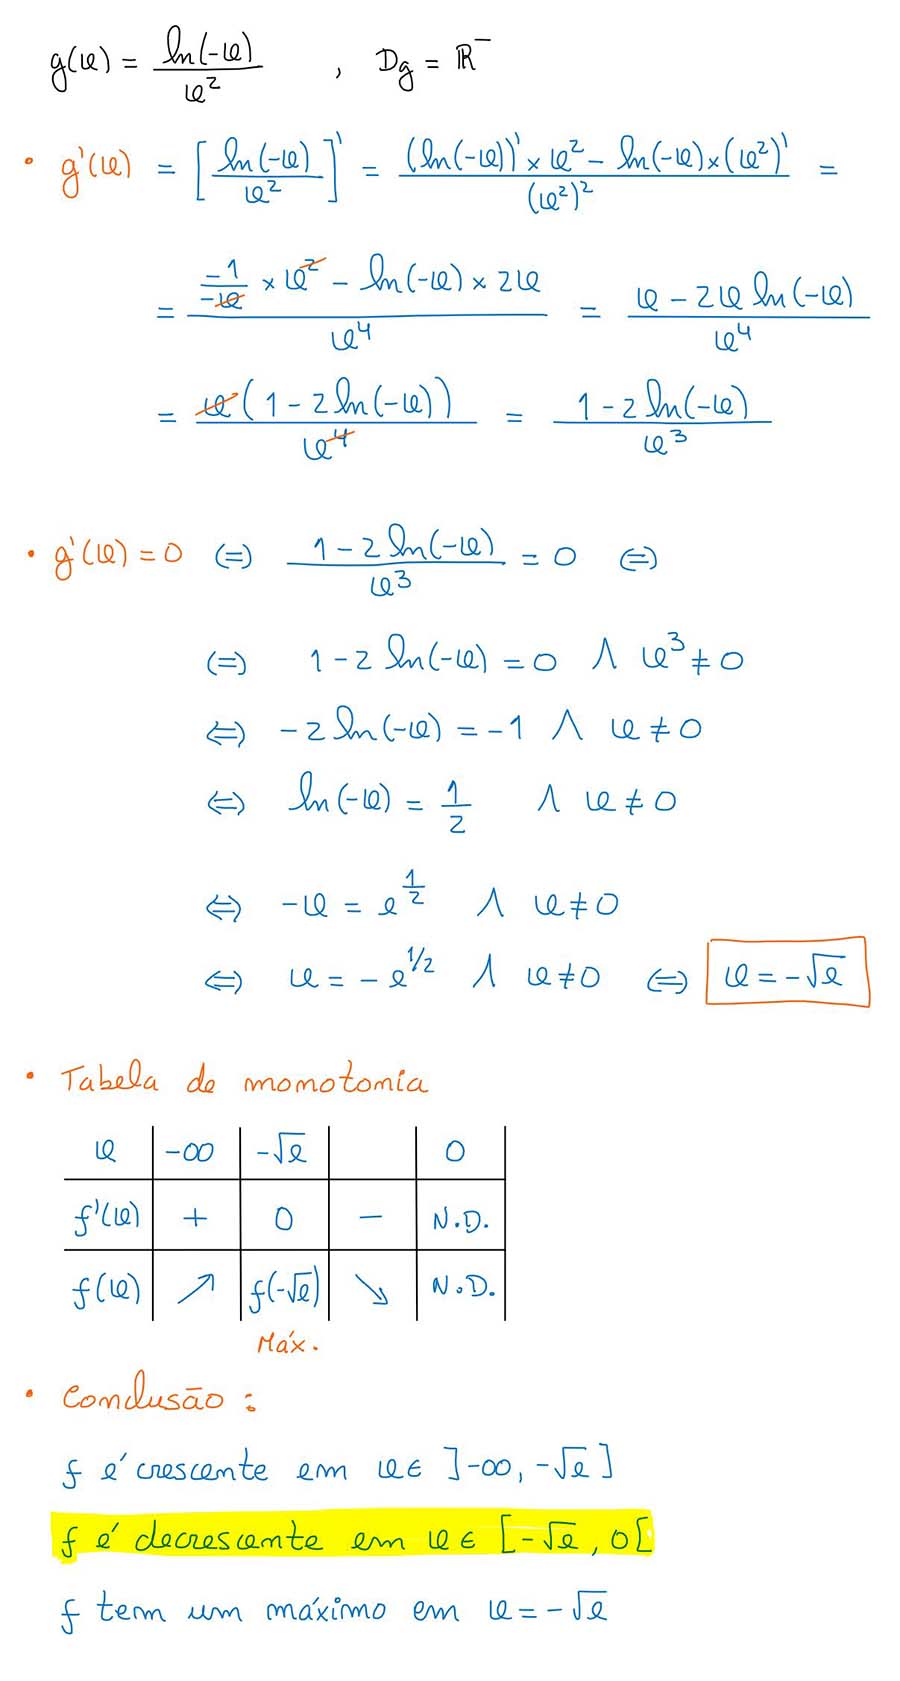 g(x) = ln(-x)/x² , Dg = ℝ⁻
• g'(x) = [ln(-x)/x²]' = ((ln(-x))' × x² - ln(-x) × (x²)')/(x²)² =
= (-1/-x × x² - ln(-x) × 2x)/x⁴ = (x - 2x ln(-x))/x⁴
= x(1 - 2 ln(-x))/x⁴ = (1 - 2 ln(-x))/x³
• g'(x) = 0 (=) (1 - 2 ln(-x))/x³ = 0 (=)
(=) 1 - 2 ln(-x) = 0 ∧ x³ ≠ 0
⇔ -2 ln(-x) = -1 ∧ x ≠ 0
⇔ ln(-x) = 1/2 ∧ x ≠ 0
⇔ -x = e^(1/2) ∧ x ≠ 0
⇔ x = -e^(1/2) ∧ x ≠ 0 (=) x = -√e
• Tabela de monotomia
x -∞ -√e 0
f'(x) + 0 - N.D.
f(x) ↗ f(-√e) ↘ N.D.
Máx.
• Conclusão :
f é crescente em x ∈ ]-∞, -√e]
f é decrescente em x ∈ [-√e, 0[
f tem um máximo em x = -√e